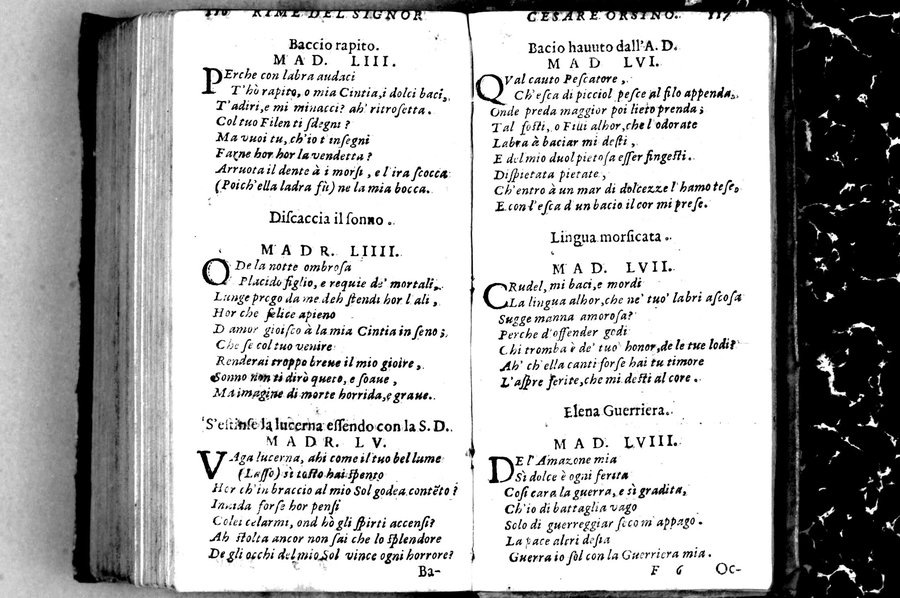 116 RIME DEL SIGNOR
Baccio rapito.
MAD. LIII.
PErche con labra audaci
T'hò rapito, o mia Cintia, i dolci baci,
T'adiri, e mi minacci? ah' ritrosetta.
Col tuo Filen ti sdegni?
Ma vuoi tu, ch'io t'insegni
Farne hor hor la vendetta?
Arruota il dente à i morsi, e l'ira scocca
(Poich'ella ladra fù) ne la mia bocca.
Discaccia il sonno.
MADR. LIIII.
O De la notte ombrosa
Placido figlio, e requie de' mortali,
Lunge prego da me deh stendi hor l'ali,
Hor che felice apieno
D amor gioisco à la mia Cintia in seno;
Che se col tuo venire
Renderai troppo breue il mio gioire,
Sonno non ti dirò queto, e soaue,
Ma imagine di morte horrida, e graue.
S'estinse la lucerna essendo con la S. D.
MADR. LV.
VAga lucerna, ahi come il tuo bel lume
(Lasso) sì tosto hai spento
Hor ch'in braccio al mio Sol godea contẽto?
Inuida forse hor pensi
Colei celarmi, ond hò gli spirti accensi?
Ah stolta ancor non sai che lo splendore
De gli occhi del mio Sol vince ogni horrore?
Ba-
CESARE ORSINO. 117
Bacio hauuto dall'A. D.
MAD LVI.
QVal cauto Pescatore,
Ch'esca di picciol pesce al filo appenda,
Onde preda maggior poi lieto prenda;
Tal fosti, o Filli alhor, che l'odorate
Labra à baciar mi desti,
E del mio duol pietosa esser fingesti.
Dispietata pietate,
Ch'entro à un mar di dolcezze l'hamo tese,
E con l'esca d un bacio il cor mi prese.
Lingua morsicata.
MAD. LVII.
CRudel, mi baci, e mordi
La lingua alhor, che ne' tuo' labri ascosa
Sugge manna amorosa?
Perche d'offender godi
Chi tromba è de' tuo' honor, de le tue lodi?
Ah' ch'ella canti forse hai tu timore
L'aspre ferite, che mi desti al core.
Elena Guerriera.
MAD. LVIII.
DE l'Amazone mia
Sì dolce è ogni ferita
Così cara la guerra, e sì gradita,
Ch'io di battaglia vago
Solo di guerreggiar seco m'appago.
La pace altri desia
Guerra io sol con la Guerriera mia.
F 6 Oc-